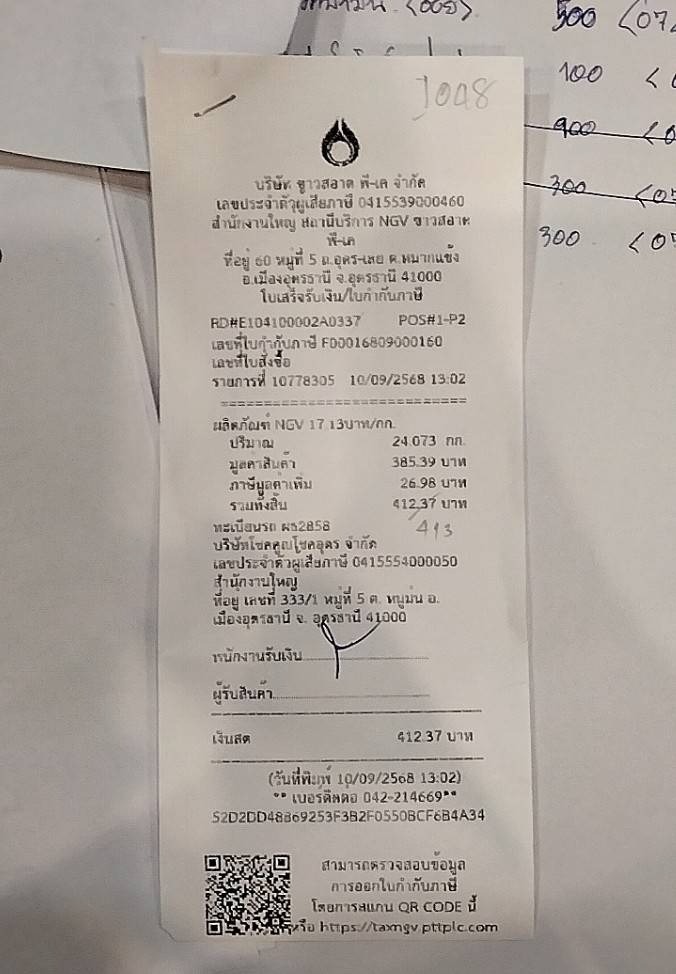 500 <07
100 <
900 <0
300 <05
300 <05
บริษัท ขาวสอาด พี-เค จำกัด
เลขประจำตัวผู้เสียภาษี 0415539000460
สำนักงานใหญ่ สถานีบริการ NGV ขาวสอาด
พี-เค
ที่อยู่ 60 หมู่ที่ 5 ถ.อุดร-เลย ต.หมากแข้ง
อ.เมืองอุดรธานี จ.อุดรธานี 41000
ใบเสร็จรับเงิน/ใบกำกับภาษี
RD#E104100002A0337 POS#1-P2
เลขที่ใบกำกับภาษี F00016809000160
เลขที่ใบสั่งซื้อ
รายการที่ 10778305 10/09/2568 13:02
ผลิตภัณฑ์ NGV 17.13บาท/กก.
ปริมาณ 24.073 กก.
มูลค่าสินค้า 385.39 บาท
ภาษีมูลค่าเพิ่ม 26.98 บาท
รวมทั้งสิ้น 412.37 บาท
413
ทะเบียนรถ ผธ2858
บริษัทโชคคูณโชคอุดร จำกัด
เลขประจำตัวผู้เสียภาษี 0415554000050
สำนักงานใหญ่
ที่อยู่ เลขที่ 333/1 หมู่ที่ 5 ต. หมูม่น อ.
เมืองอุดรธานี จ. อุดรธานี 41000
พนักงานรับเงิน
ผู้รับสินค้า
เงินสด 412.37 บาท
(วันที่พิมพ์ 10/09/2568 13:02)
** เบอร์ติดต่อ 042-214669**
52D2DD48869253F3B2F0550BCF6B4A34
สามารถตรวจสอบข้อมูล
การออกใบกำกับภาษี
โดยการสแกน QR CODE นี้
หรือ https://taxngv.pttplc.com